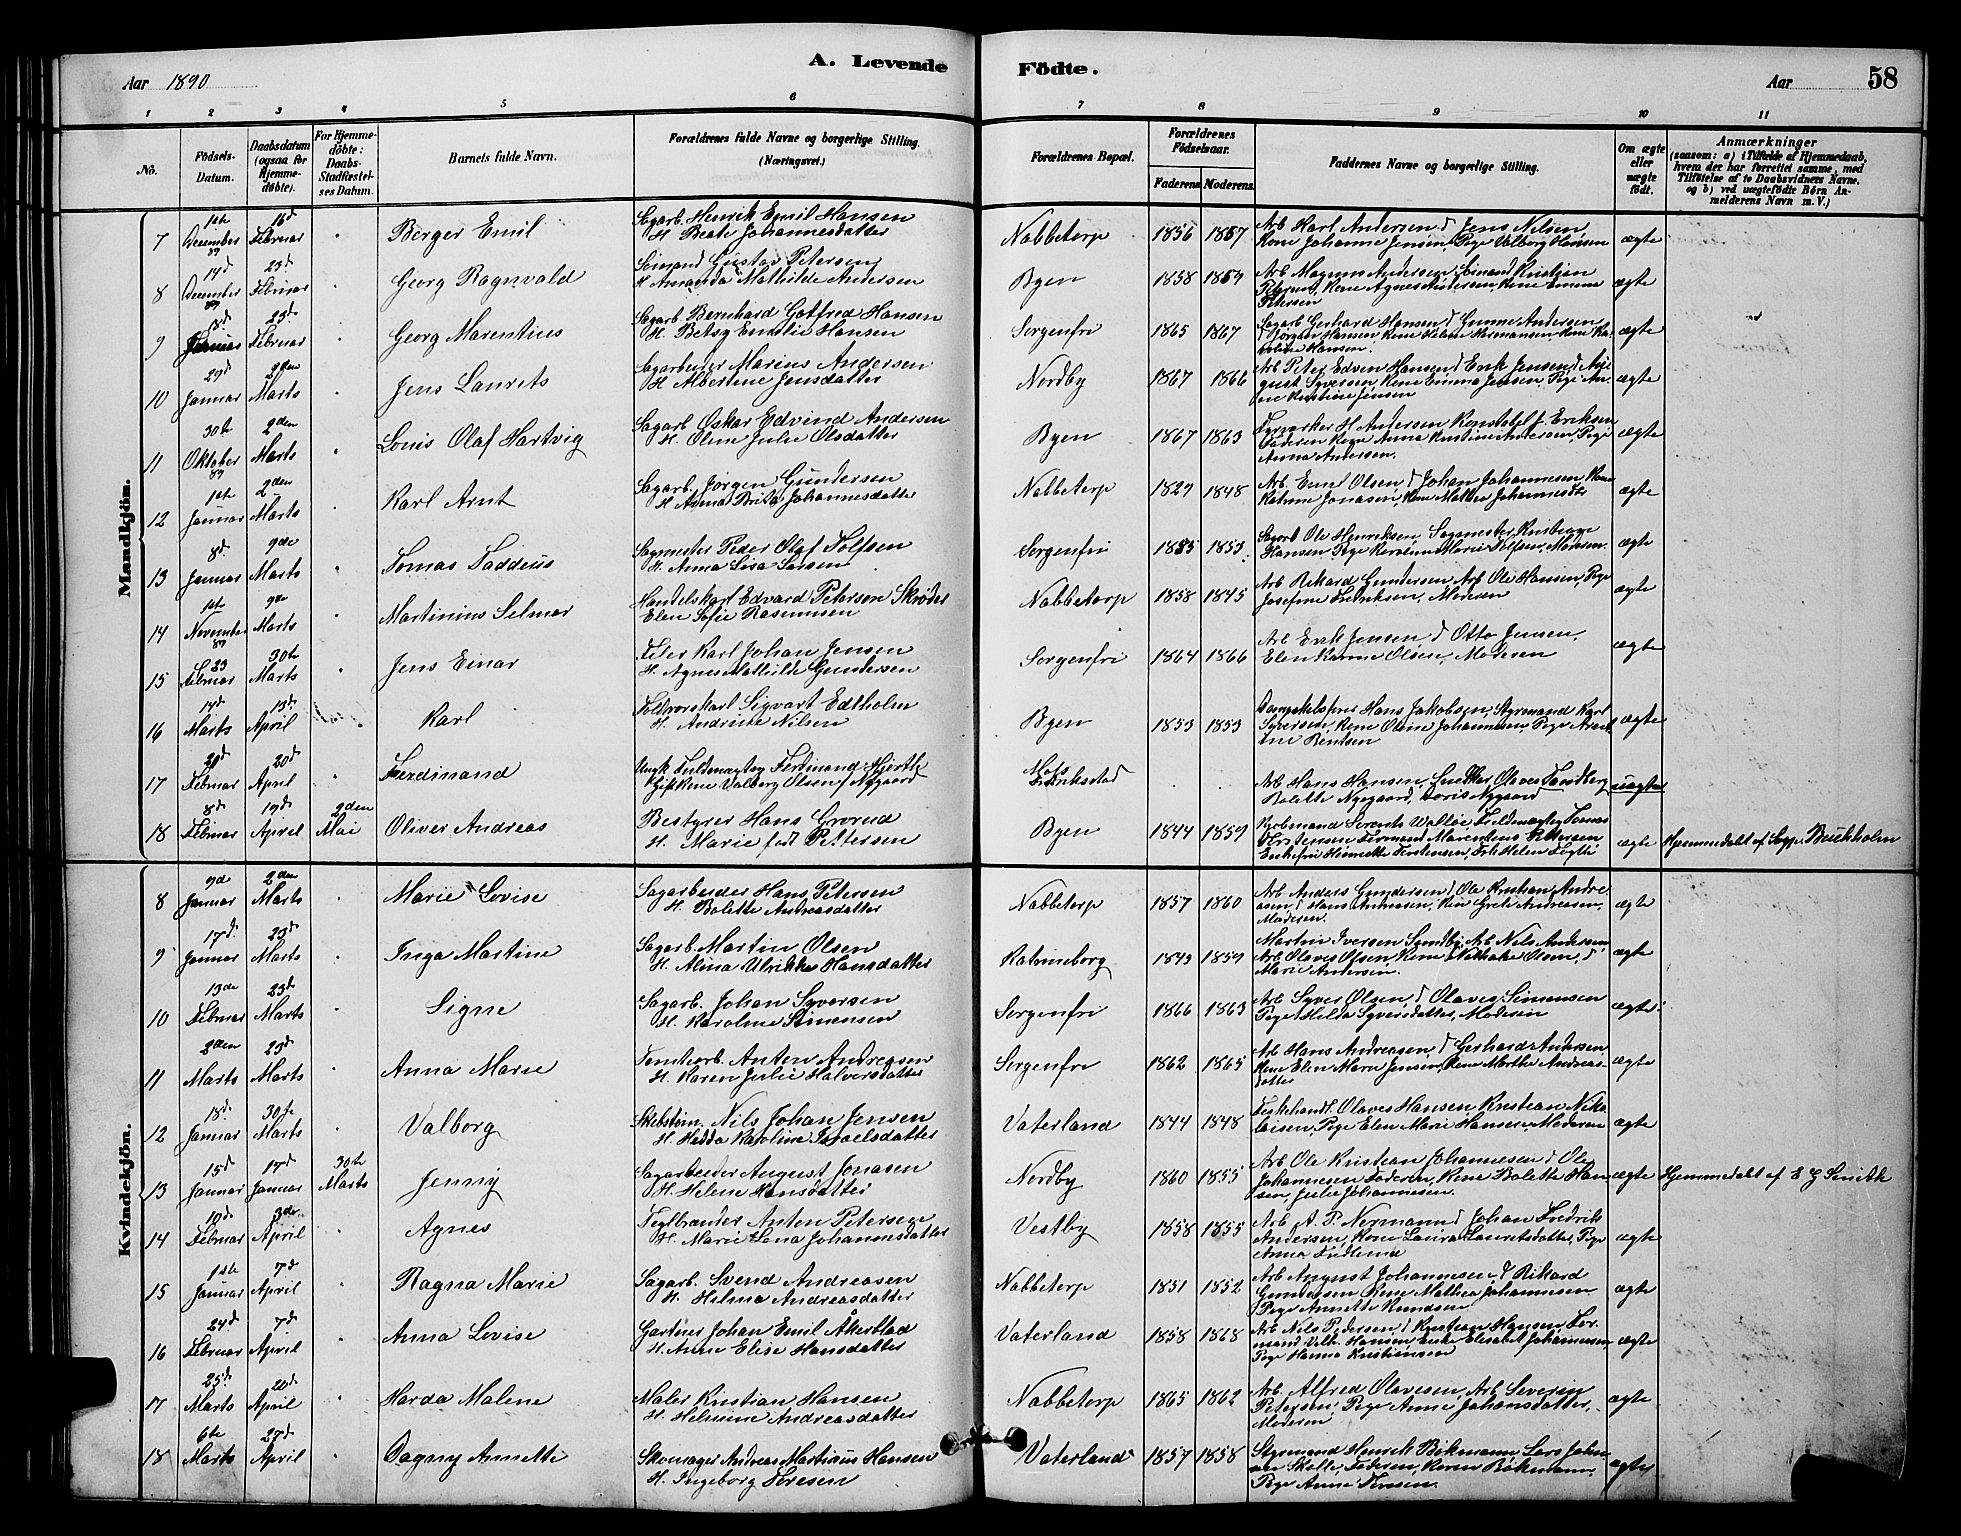 Aar 1890
A. Levende
Födte.
Aar
58
1 2 3 4 5 6 7 8 9 10 11
No.
Födsels-Datum.
Daabsdatum (ogsaa for Hjemme-döbte).
For Hjemme-döbte: Daabs-Stadfæstel-ses Datum.
Barnets fulde Navn.
Forældrenes fulde Navne og borgerlige Stilling. (Næringsvei.)
Forældrenes Bopæl.
Forældrenes Födselsaar.
Faderens. Moderens.
Faddernes Navne og borgerlige Stilling.
Om ægte eller uægte födt.
Anmærkninger
(saasom: a) i Tilfælde af Hjemmedaab, hvem der har forrettet samme, med Tilföielse af to Daabsvidners Navne, og b) ved uægtefödte Börn An-melderens Navn m.V.)
Mandkjön.
7 1ste December 89 16d Februar Berger Emil
Sagarb. Henrik Emil Hansen
H. Beate Johannesdatter
Nabbetorp 1856 1857
Arb Karl Andersen, d Jens Nilsen,
Kone Johanne Jensen, Pige Valborg Hansen
ægte
8 14d December 89 23d Februar Georg Ragnvald
Sömand Gustav Petersen
H. Amanda Mathilde Andersen
Byen 1858 1859
Arb Magnus Andersen, Sömand Kristian
Petersen, Kone Agnes Andersen, Kone Emma
Petersen
ægte
9 Januar 23d Februar Georg Marentius
Sagarb Bernhard Gotfred Hansen
H. Betsy Emilie Hansen
Sorgenfri 1865 1867
Sagarb Gerhard Hansen, d Gunne Andersen
d Jörgen Hansen, Kone Helene Hermansen, Kone Ka-
roline Hansen.
ægte
10 29d Januar 2den Marts Jens Laurits
Sagarbeider Marius Andersen
H Albertine Jensdatter
Nordby 1867 1866
Arb Peter Edvin Hansen, d Erik Jensen, d Au-
gust Syversen, Kone Emma Jensen, Pige An-
ne Kristine Jensen
ægte
11 30te Oktober 89 2den Marts Louis Olaf Hartvig
Sagarb Oskar Edvind Andersen
H. Oline Julie Olsdatter
Byen 1867 1863
Fyrvarker H Andersen Konstabel J. Eriksen
Faderen Kone Anna Kristine Andersen, Pige
Anna Andersen.
ægte
12 1ste Januar 2den Marts Karl Arnt
Sagarb. Jörgen Gundersen
H Anna Brita Johannesdatter
Nabbetorp 1829 1848
Arb Emil Olsen d Johan Johannesen Kone
Katrine Jonasen, Kone Mathea Johannesdtr
ægte
13 8d Januar 9de Marts Tomas Taddeus
Sagmester Peder Olaf Tolfsen
H. Anna Lisa Larsen
Sorgenfri 1855 1853
Sagarb Ole Henriksen, Sagmester Kristian
Hansen Pige Karoline Marie Tolfsen, Moderen.
ægte
14 1ste November 89 9de Marts Martinius Selmar
Handelskarl Edvard Petersen Skröder
Elen Sofie Rasmusen
Nabbetorp 1858 1845
Arb Rikard Gundersen, Arb Ole Hansen, Pige
Josefine Fredriksen, Moderen
ægte
15 23 Februar 30te Marts Jens Einar
Filer Karl Johan Jensen
H. Agnes Mathilde Gundersen
Sorgenfri 1864 1866
Arb Erik Jensen d Otto Jensen,
Elen Karine Olsen, Moderen
ægte
16 14d Marts 13d April Karl
Sigvart Edtholm
H. Andrine Nilsen
Byen 1853 1853
Hans Jakobsen, Styrmand Karl
Syversen, Kone Oline Johannesen, Pige
Bentsen
ægte
17 Februar 20d April Ferdinand
Ungk Fuldmægtig Ferdinand Hjorth
Gift Kone Valborg Olsen f Nygaard
Moss
Fredrikstad
Arb Hans Hansen, Snedker Olaves Sandberg
Bolette Nygaard, Nygaard
uægte
18 8d Februar 19d April 2den Mai Oliver Andreas
Bestyrer Hans Grorud
H. Marie födt Pettersen
Byen 1844 1859
Kjöbmand Lorents Walløe Fuldmægtig Tomas
Torstensen Formand Marentius Pettersen
Enkefru Henriette Torstensen, Frk Helen
ægte Hjemmedöbt af Buckholm
Kvindekjön.
8 9d Januar 2den Marts Marie Lovise
Sagarbeider Hans Petersen
H. Bolette Andreasdatter
Nabbetorp 1857 1860
Arb Anders Gundersen, d Ole Kristian Andre-
asen, d Hans Andreasen, Kone Grete Andreasen,
Moderen.
ægte
9 17d Januar 23d Marts Inga Martine
Sagarb. Martin Olsen
H. Alina Ulrikke Hansdatter
Katrineborg 1849 1859
Martin Iversen Sundby, Arb Nils Andersen
Arb Olaves Olsen, Kone Nathalie Olsen, d
Marie Andersen.
ægte
10 13de Februar 23d Marts Signe
Sagarb. Johan Syversen
H. Karoline Simensen
Sorgenfri 1866 1863
Arb Syver Olsen, d Olaves Simensen
Pige Hilda Syversdatter, Moderen
ægte
11 2den Marts 23d Marts Anna Marie
Tomtearb. Anton Andreasen
H. Karen Julie Halvorsdatter
Sorgenfri 1862 1865
Arb Hans Andreasen, d Gerhard Andersen
Kone Elen Marie Jensen, Kone Marthe Andreas-
datter
ægte
12 18d Januar 30te Marts Valborg
Skibstöm. Nils Johan Jensen
H. Hedda Karoline Israelsdatter
Vaterland 1844 1848
Fiskehandl. Olaves Hansen Kristian Niko-
laisen, Pige Elen Marie Hansen Moderen
ægte
13 15d Januar 17d Januar 30te Marts Jenny
Sagarbeider August Jonasen
H. Helene Hansdatter
Nordby 1860 1855
Arb Ole Kristian Johannesen d Ole
Johannesen Faderen, Kone Bolette Han-
sen, Julie Johannesen.
ægte Hjemmedöbt af E G Smith
14 10d Februar 3de April Agnes
Teglbrænder Anton Petersen
H. Marie Lena Johannesdatter
Vestby 1858 1855
Arb A. P. Nermann, d Johan Fredrik
Andersen, Kone Laura Lauritsdatter, Pige
Anna
ægte
15 1ste Januar 7d April Ragna Marie
Sagarb. Svend Andreasen
H. Helena Andreasdatter
Nabbetorp 1851 1852
Arb August Johannesen, d Rikard
Gundersen Kone Mathea Johannesen
Pige Annette Knudsen
ægte
16 24d Februar 7d April Anna Lovise
Gartner Johan Emil Åkerblad
H. Anne Elise Hansdatter
Vaterland 1858 1868
Arb Nils Pedersen, d Kristian Hansen For-
mand Vilh. Hansen, Enke Elisabet Johannesen,
Pige Hanna Kristiansen
ægte
17 25d Marts 20d April Harda Malene
Maler Kristian Hansen
H. Helmine Andreasdatter
Nabbetorp 1865 1862
Arb. Alfred Olavesen, Arb Severin
Petersen, Pige Anne Johansdatter,
Moderen
ægte
18 6te Marts 27d April Dagny Annette
Skomager Andreas Martinius Hansen
H. Ingeborg Toresen
Vaterland 1857 1858
Styrmand Henrik Bökmann Lars Johan-
sen Skolle, Faderen, Karen Bökmann,
Pige Anne Toresen.
ægte